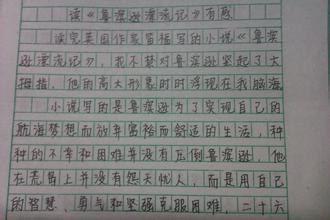 读《鲁滨逊漂流记》有感
读完英国作家笛福写的小说《鲁滨
逊漂流记》，我不禁对鲁滨逊竖起了大
拇指，他的高大形象时时浮现在我脑海。
小说写的是鲁滨逊为了实现自己的
航海梦想而放弃富裕而舒适的生活，种
种的不幸和困难并没有压倒鲁滨逊，他
在荒岛上并没有怨天忧人，而是用自己
的智慧、勇气和坚强克服困难，二十六